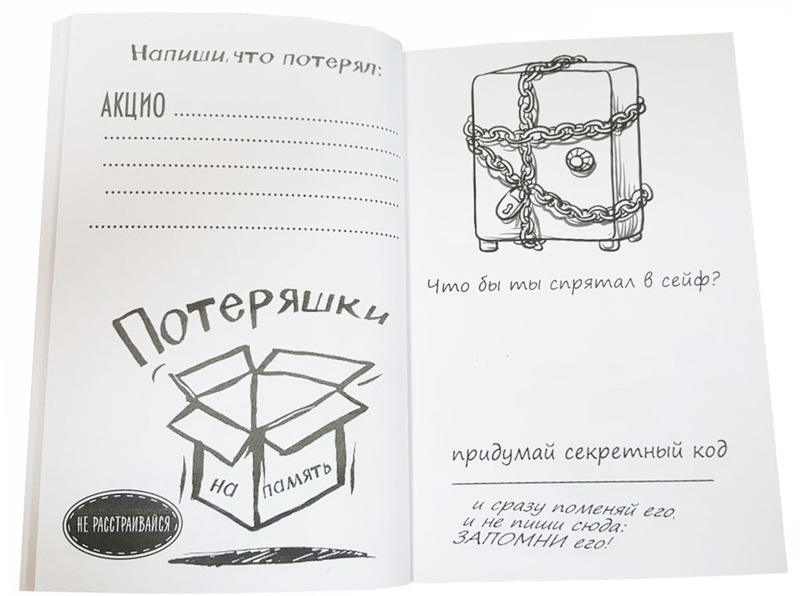 Напиши, что потерял:
АКЦИО
Потеряшки
на память
НЕ РАССТРАИВАЙСЯ
Что бы ты спрятал в сейф?
придумай секретный код
и сразу поменяй его,
и не пиши сюда:
ЗАПОМНИ его!